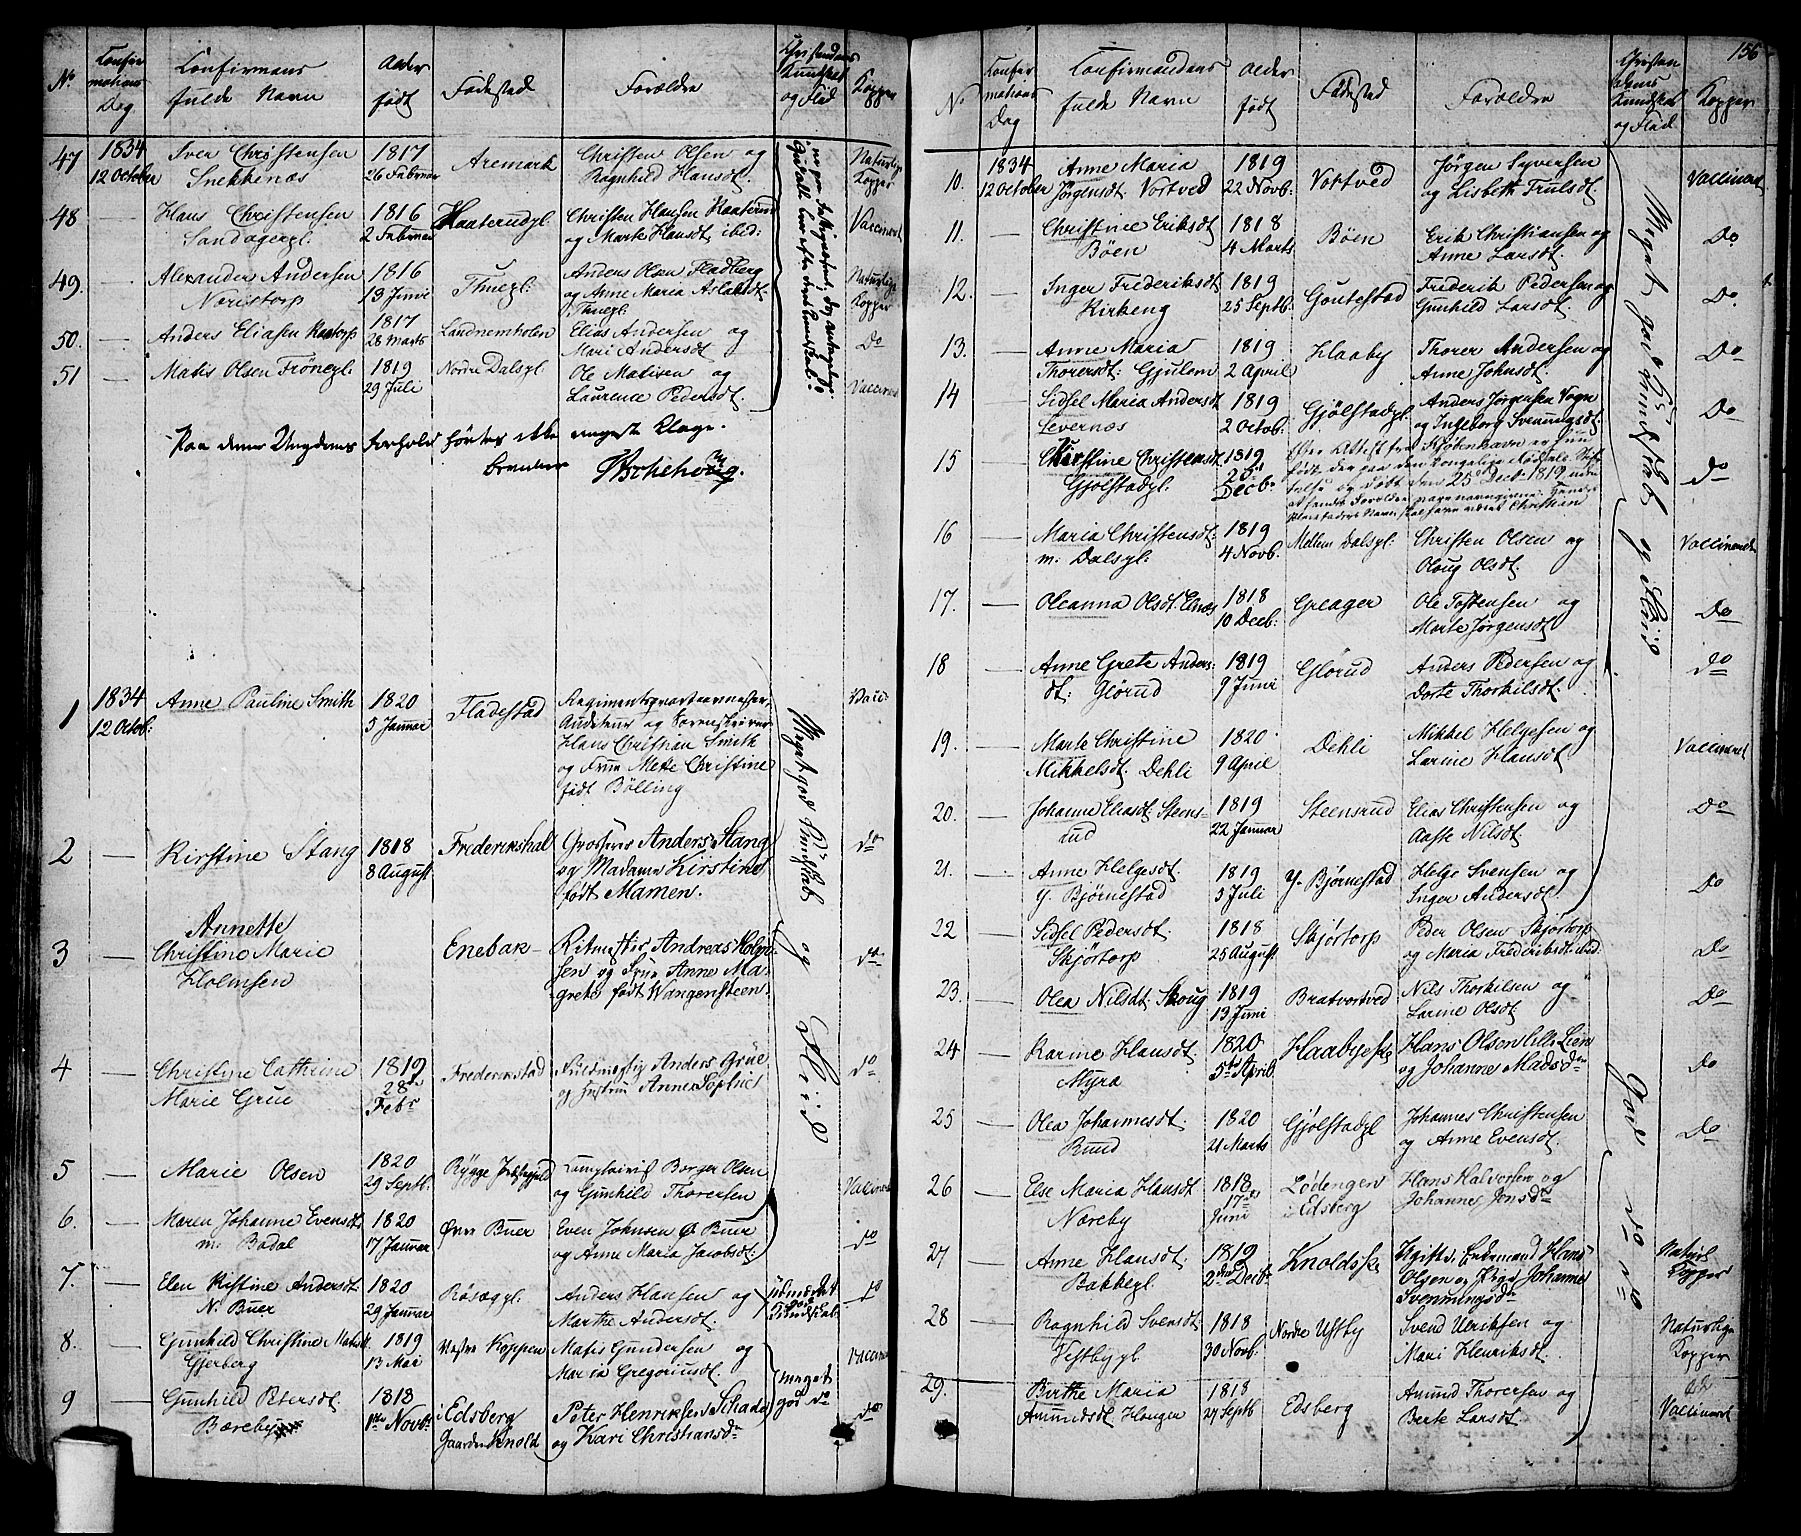 No
Confirmations Dag
Confirmans fulde Navn
Alder født
Fødested
Forældre
Christendoms Kundskab og Flid
Kopper
47 1834 12 October
Iver Christensen Snekkenæs
1817 26 Februar
Aremark
Christen Olsen og Ragnhild Hansdt.
Naturlige Kopper
48 —
Hans Christensen Sandagergl.
1816 2 Februar
Christen Hansen
og Marte Hansdt. ibed:
Vaccineret
49. —
Alexander Andersen Neristorp
1816 13 Juni
Thuegl.
Anders Olsen Fladberg
og Anne Maria Aslaksdt Thuegl.
Naturlige Kopper
50. —
Anders Eliasen
1817 28 Marts
Landnemholen
Elias Andersen og
Mari Andersdt
Do
51 —
Matis Olsen Frönegl.
1819 29 Juli
Nordre Dalsgl.
Ole Matisen og
Laurence Pedersdt.
Vaccineret
Paa denne Ungdoms Forhold hörtes ikke nogen Klage.
1 1834 12 Octob:
Anne Pauline Smith
1820 5 Januar
Fladestad
Regimentsqvarteermester
Auditeur og Sorenskriver
Hans Christian Smith
og Frue Mette Christine
født Bölling
Vacc:
Meget god Kundskab og Fliid
2 —
Kirstine Stang
1818 8 August
Frederikshal
Grosserer Anders Stang
og Madame Kirstine
født Mamen.
do
3 —
Annette Christine Marie Holmsen
Enebak
Ritmester Andreas Holmsen
og Frue Anne Magrete
født Wangensteen.
do
4 —
Christine Cathrine Marie Grue
1819 28de Febr
Frederikstad
Anders Grüe
og Hustru Anne Sophie
do
5 —
Marie Olsen
1820 29 Septb.
Rygge Præstegjeld
Börger Olsen
og Gunhild Thorersen
Vaccineret
6. —
Maren Johanne Evensdt. m. Bodal
1820 17 Januar
Övre Buer
Even Johnsen Ö Buer
og Anne Maria Jacobsdt.
do
7. —
Elen Kistine Andersdt. N. Buer
1820 29 Januar
Rösægl.
Anders Hansen og
Marthe Andersdt.
udmærket god Kundskab
do
8. —
Gunhild Christine Matisdt. Gjerberg
1819 13 Mai
Vestre Koppen
Matis Gundersen og
Maria Gregoriusdt.
Vaccineret
meget god do
9 —
Gunhild Petersdt. Bæreby
1818 1ste Novb.
i Edsberg Gaarden Knold
Peter Henriksen Skade
og Kari Christiansdr
do
156
No
Confirmations Dag
Confirmandens fulde Navn
Alder født
Födested
Forældre
Christendoms Kundskab og Flid
Kopper
10. 1834 12 October
Anne Maria Jørgensdt. Vortved
1819 22 Novb:
Vortved
Jørgen Syversen
og Lisbeth Trulsdt.
Vaccineret
11. —
Christine Eriksdt Böen
1818 4 Marts
Böen
Erik Christiansen og
Anne Larsdt.
Do
12. —
Inger Frederiksdt. Kirkeng
1819 25 Septb:
Goutestad
Frederik Pedersen og
Gunhild Larsdt.
Do
13. —
Anne Maria Thorersdt: Gjulem
1819 2 April
Haaby
Thorer Andersen og
Anne Johnsdt.
Do
14 —
Sidsel Maria Andersdt Levernæs
1819 2 Octob:
Gjölstadgl.
Anders Jørgensen Vogn
og Ingeborg Svenningsdt.
Do
15 —
Christine Christensdt Gjölstadgl.
1819 25de Decb.
Efter Attest fra Kjøbenhavn er hun
født der paa den kongelige Födsels Stiftelse
og döbt den 25 Dec. 1819 uden
at hendes Forældre
Navn skal have været Christian
do
16 —
Maria Christensdt. m. Dalsgl.
1819 4 Novb.
Mellem Dalsgl.
Christen Olsen og
Oloug Olsdt.
Vaccineret
17. —
Oleanna Olsdt. Elnæs
1818 10 Decb.
Greager
Ole Tostensen og
Marte Jørgensdt.
Do
18 —
Anne Grete Andersdt: Glörud
1819 9 Juni
Glörud
Anders Pedersen og
Dorte Thorkilsdt.
do
19. —
Marte Christine Mikkelsdt. Dehli
1820 9 April
Dehli
Mikkel Helgesen og
Larine Hansdt.
Vaccineret
20. —
Johanne Eliasdt. Steensrud
1819 22 Januar
Steensrud
Elias Christensen og
Aasse Nilsdt.
Do
21. —
Anne Helgesdt. Y. Björnestad
1819 3 Juli
Y. Björnestad
Helge Svensen og
Inger Andersdt.
Do
22 —
Sidsel Pedersdt. Skjörtorp
1818 25 August
Skjörtorp
Peder Olsen Skjörtorp
og Maria Frederiksdt. ibed
Do
23. —
Olea Nilsdt. Skoug
1819 13 Juni
Bratvortved
Nils Thorkilsen og
Larine Olsdt.
Do
24 —
Karine Hansdt. Myra
1820 5te April
Haabyeie
Hans Olsen Lille Lien
og Johannes Madsdr
Do
25 —
Olea Johannesdt. Ruud
1820 21 Marts
Gjölstadgl
Johannes Christensen
og Anne Evensdt.
Do
26 —
Else Maria Hansdt Næreby
1818 17de Juni
Lödengen i Edsberg
Hans Halvorsen og
Johanne Jensdr
27 —
Anne Hansdt. Bakkegl.
1819 2den Decb.
Knoldseie
Ugifte Hans
Olsen og Pige Johanne
Svenningsdr
Naturl. Kopper
28 —
Ragnhild Svensdt. Vestbygl
1818 30 Novb.
Nordre Ustby
Svend Ulriksen og
Mari Henriksdt.
Naturlige Kopper
29. —
Birthe Maria Amundsdt Houger
1818 27 Septb
Edsberg
Amund Thorersen og
Berte Larsdt.
Vaccineret
Meget god Kundskab og Fliid
God do do